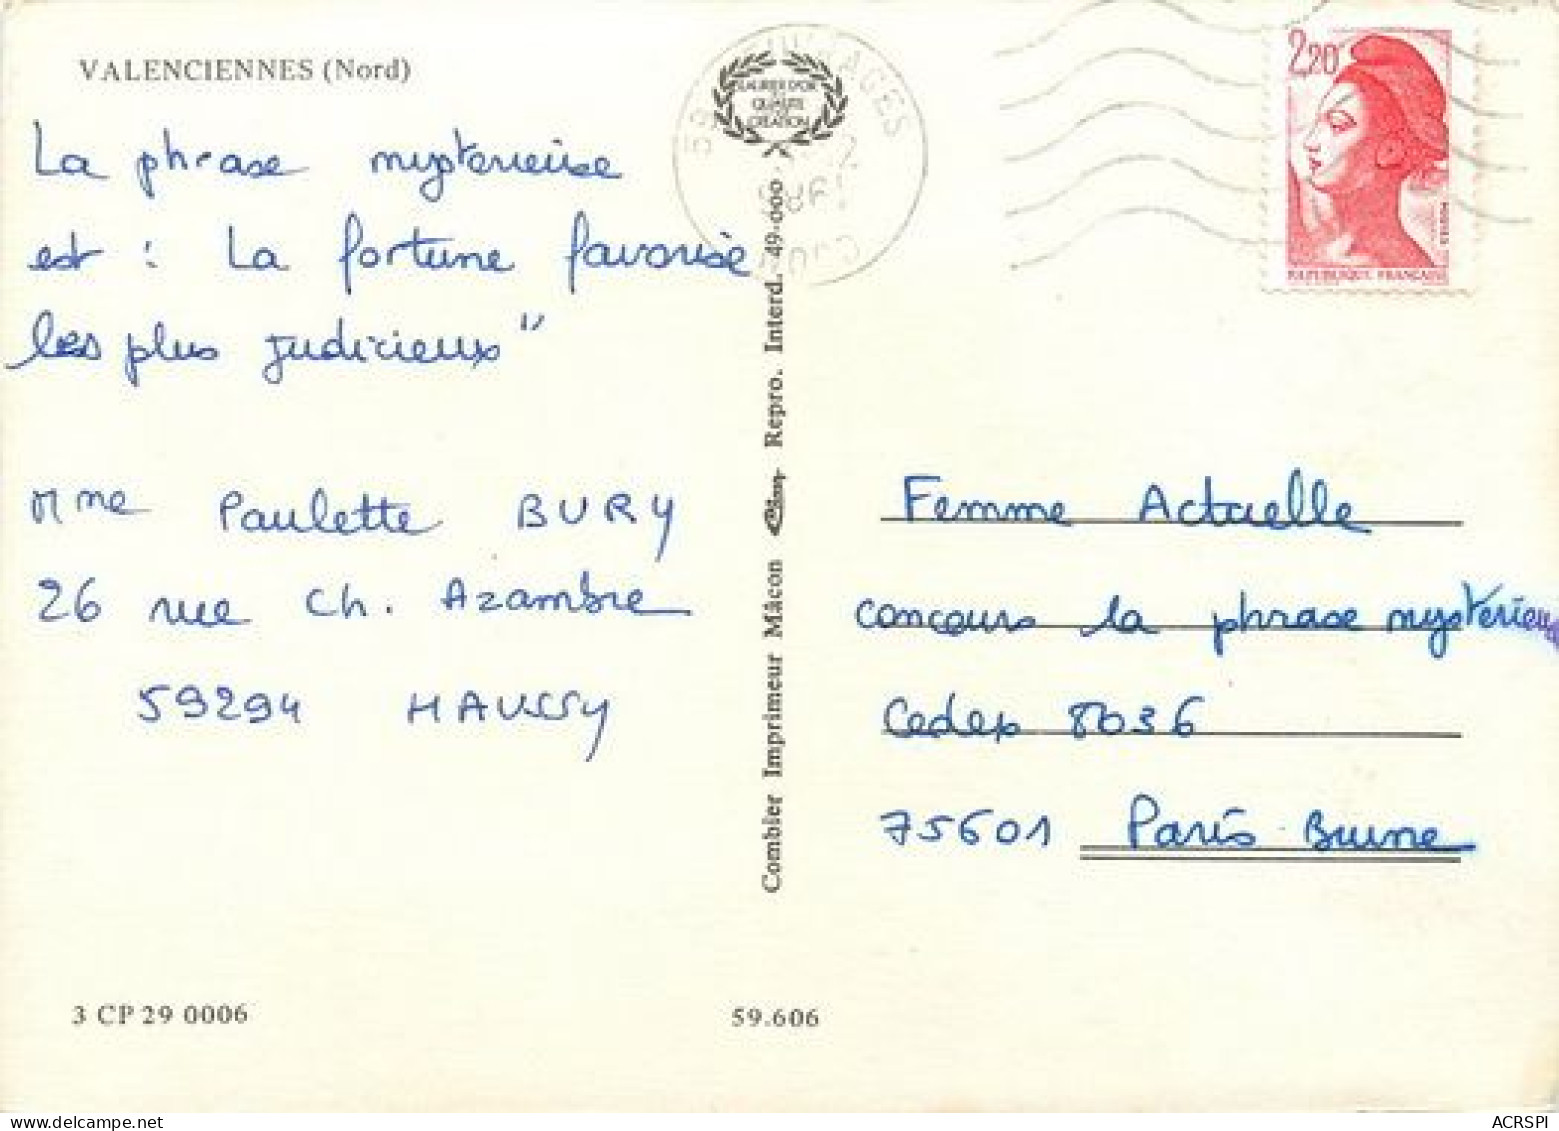 VALENCIENNES (Nord)
La phrase mysterieuse
est : La fortune favorise
les plus judicieux"
Mme Paulette BURY
26 rue Ch. Azambre
59294 HAUSSY
3 CP 29 0006
LAURIER D'OR
QUALITE
CREATION
Combier Imprimeur Mâcon
Repro. Interd. 49-000
59.606
2,20
REPUBLIQUE FRANÇAISE
Femme Actuelle
concours la phrase mystérieuse
Cedex 8036
75601 Paris Brune
ACRSPI